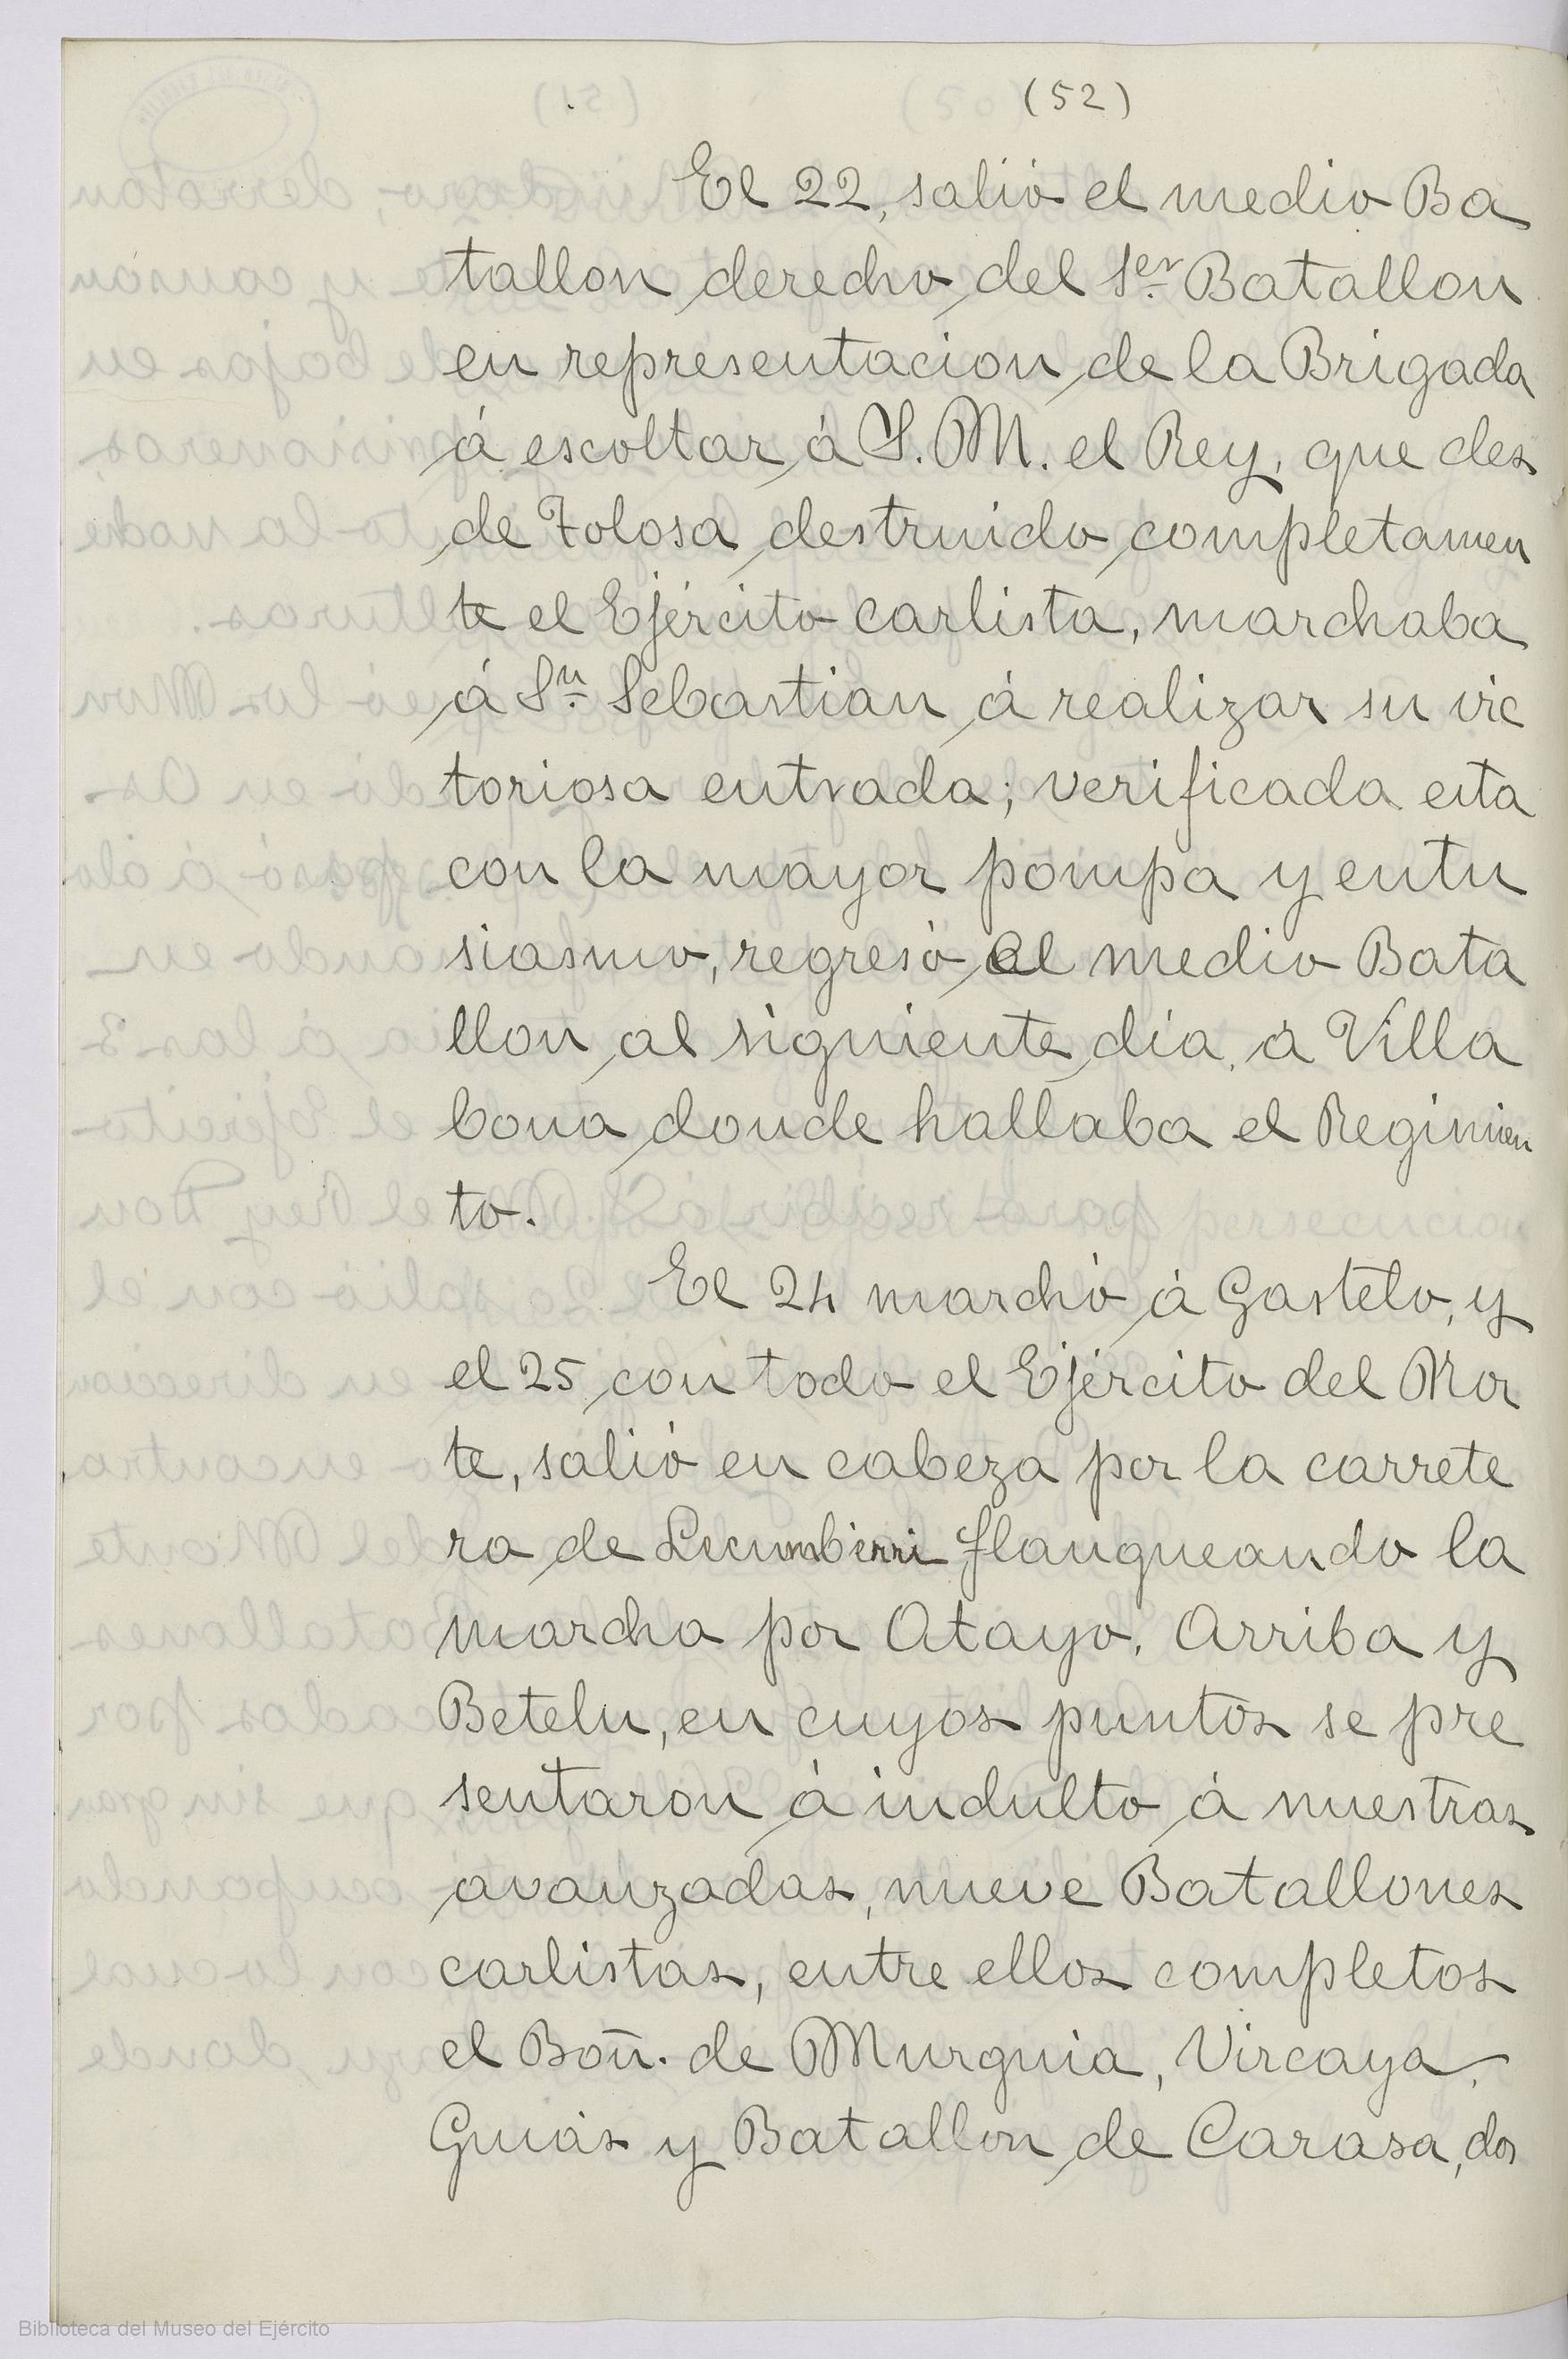 (52)
El 22, salió el medio Ba
tallon derecho del 1er Batallon
en representacion de la Brigada
á escoltar á S. M. el Rey, que des
de Tolosa destruido completamen
te el Ejército carlista, marchaba
á Sn. Sebastian á realizar su vic
toriosa entrada; verificada esta
con la mayor pompa y entu
siasmo, regresó el medio Bata
llon al siguiente dia, á Villa
bona donde hallaba el Regimien
to.
El 24 marchó á Gastelo, y
el 25 con todo el Ejército del Nor
te, salió en cabeza por la carrete
ra de Lecumbérri flanqueando la
marcha por Atayo, Arriba y
Betelu, en cuyos puntos se pre
sentaron á indulto á nuestras
avanzadas, nueve Batallones
carlistas, entre ellos completos
el Bon̄. de Murguia, Vircaya,
Guias y Batallon de Carasa, dos
Biblioteca del Museo del Ejército